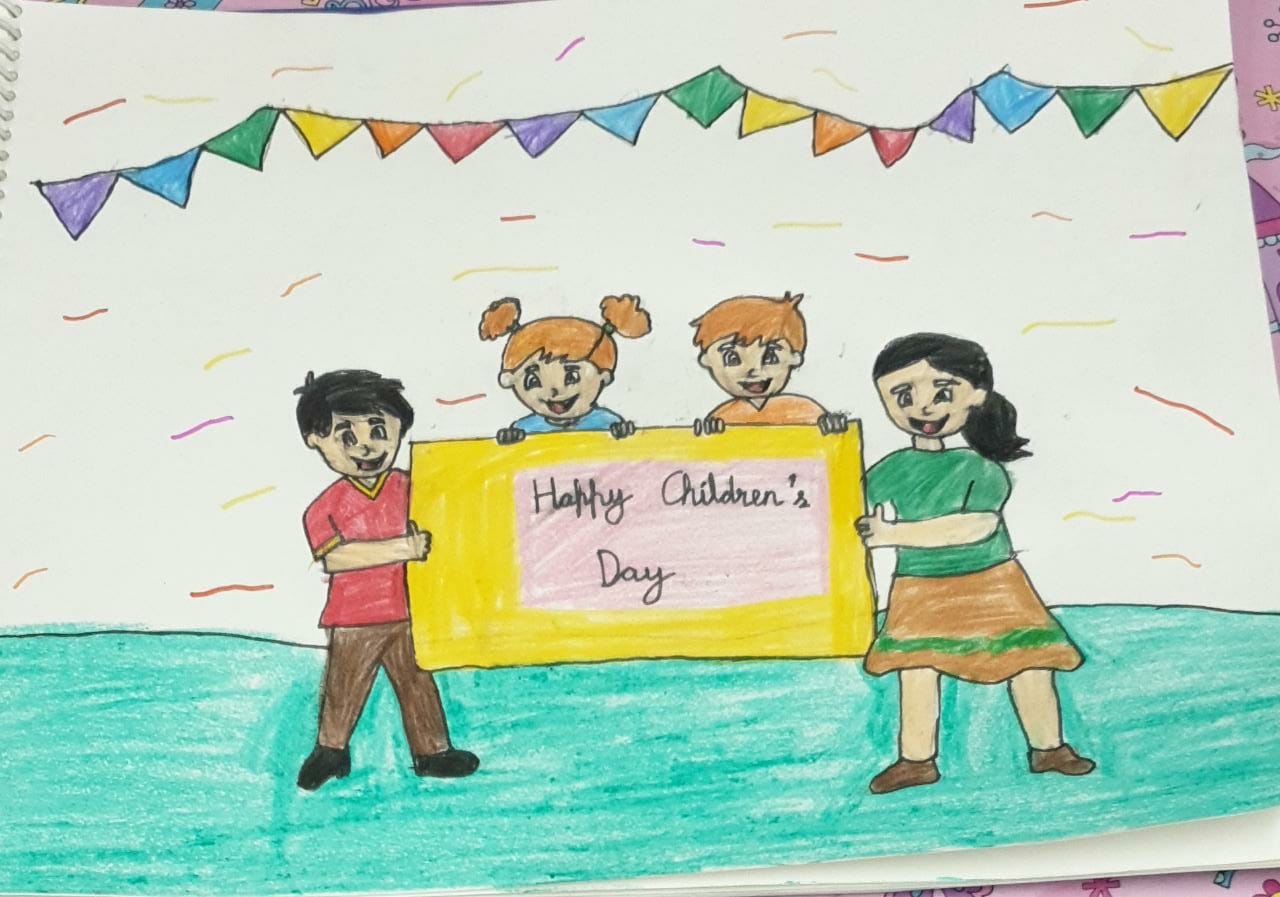 Happy Children's
Day